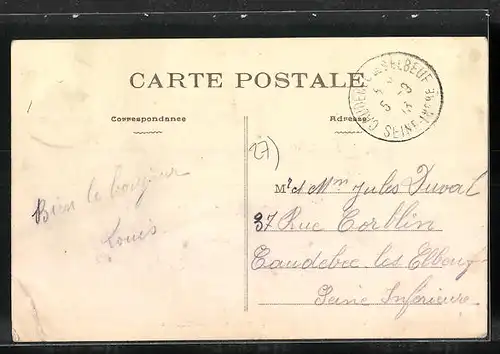 CARTE POSTALE
CAUDEBEC-LES-ELBEUF
SEINE-INFRE
Correspondance
Adresse
27)
Bien le bonjour
Louis
Mr et Mme Jules Duval
37 Rue Corblin
Caudebec les Elbeuf
Seine Inférieure